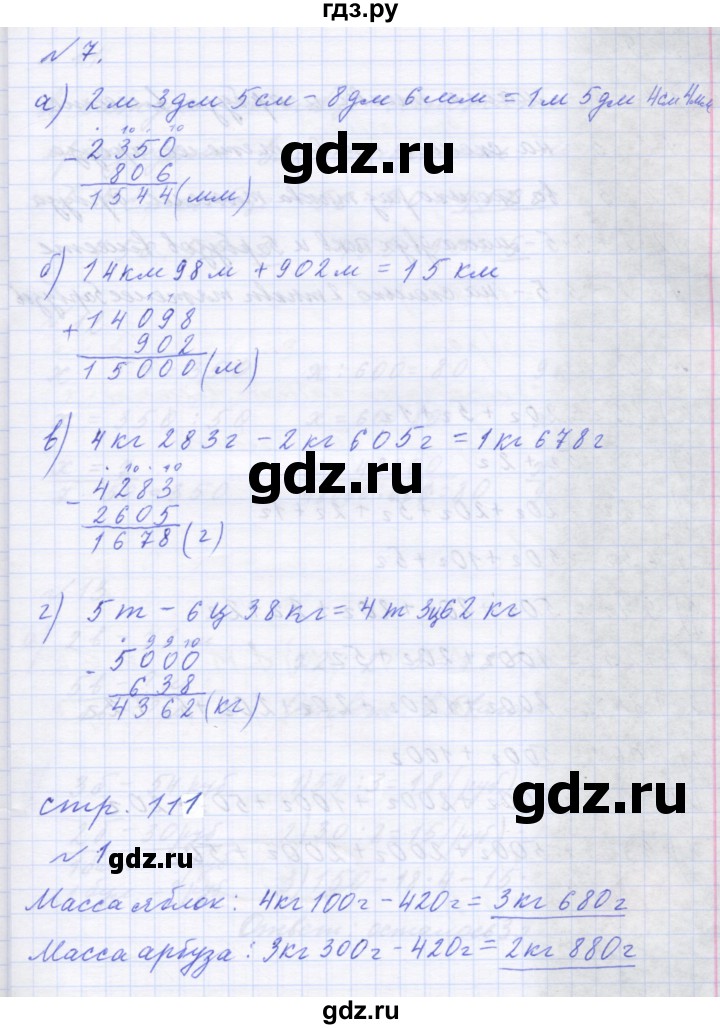 гдз.ру
№ 7.
а) 2м 3дм 5см - 8дм 6мм = 1м 5дм 4см 4мм
. 10 . 10
- 2350
806
1544 (мм)
gdz.ru
б) 14км 98м + 902м = 15 км
+ 14098
902
15000 (м)
gdz.ru
в) 4кг 283г - 2кг 605г = 1кг 678г
. 10 . 10
- 4283
2605
1678 (г)
gdz.ru
г) 5т - 6ц 38кг = 4т 3ц 62кг
. 9 9 10
- 5000
638
4362 (кг)
gdz.ru
стр. 111
gdz.ru
№ 1
gdz.ru
Масса яблок: 4кг 100г - 420г = 3кг 680г
Масса арбуза: 3кг 300г - 420г = 2кг 880г
gdz.ru